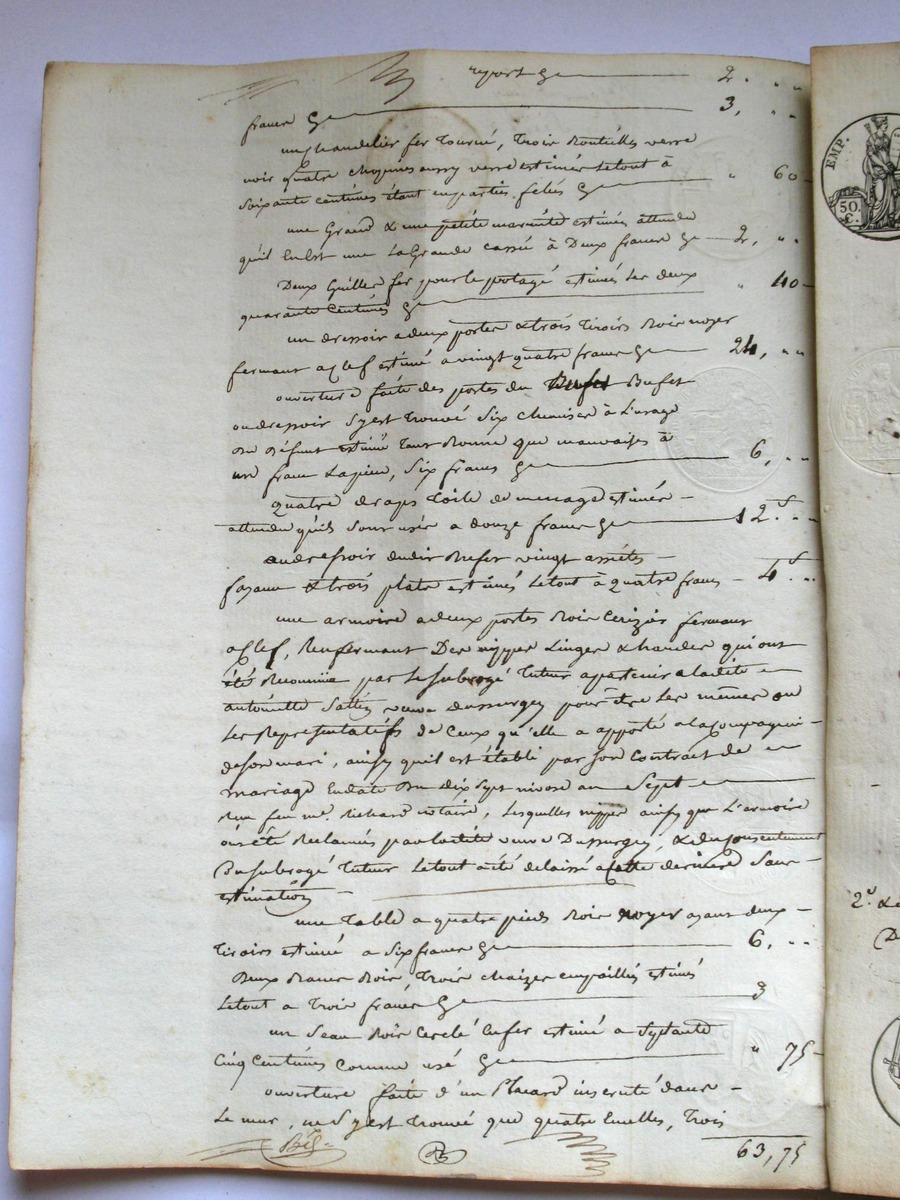 report 2. " "
francs 3, " "
un chandelier fer tourné, trois bouteilles verre
noir quatre chopines aussy verre estimés letout à
soixante centimes étant enparties felés " 60
une Grande & une petite marmite estimées attendu
qu'il En Est une La Grande cassée à Deux francs 2, " "
Deux Grilles fer pour le potagé estimés Les deux
quarante Centimes " 40
un dressoir a deux portes & trois tiroirs Bois noyer
fermant a Clef estimé a vingt quatre francs 24, " "
ouverture faite des portes du Bufet
ou dressoir s'y est trouvé six chemises à L'usage
du défunt estimé tant bonne que mauvaises à
un franc La piece, six francs 6, " "
quatre draps toile de menage estimés
attendu qu'ils sont usés a douze francs 12. "
au dressoir dudit Bufet vingt assiétes
fayance & trois plats estimés Letout à quatre francs 4. "
une armoire a deux portes Bois Cerizier fermant
a Clef, Renfermant Des nippes Linges & hardes qui ont
été Reconnûe par Le subrogé tuteur apartenir a ladite
antoinette veuve Dussurgey pour être Les mêmes ou
Les Représentatifs de Ceux qu'elle a apporté a la Compagnie
de son mari, ainsy qu'il est établi par son Contrat de
mariage En date du dix sept nivose an sept
Reçu feu me. Richard notaire, Lesquelles nippes ainsy que L'armoire
ont été Reclamés par ladite veuve Dussurgey, & du Consentement
Du subrogé tuteur Letout a été delaissé a Cette derniere sans
estimation
une Table a quatre pieds Bois noyer ayant deux
tiroirs estimée a six francs 6, " "
Deux Bancs Bois, trois chaizes empaillés estimés
Letout a trois francs 3
un seau Bois Cerclé En fer estimé a septante
Cinq Centimes comme usé " 75
ouverture faite d'un Placard incruté dans
Le mur, ne s'y est trouvé que quatre Ecuelles, trois
63,75
EMP.
50.
C.
2º